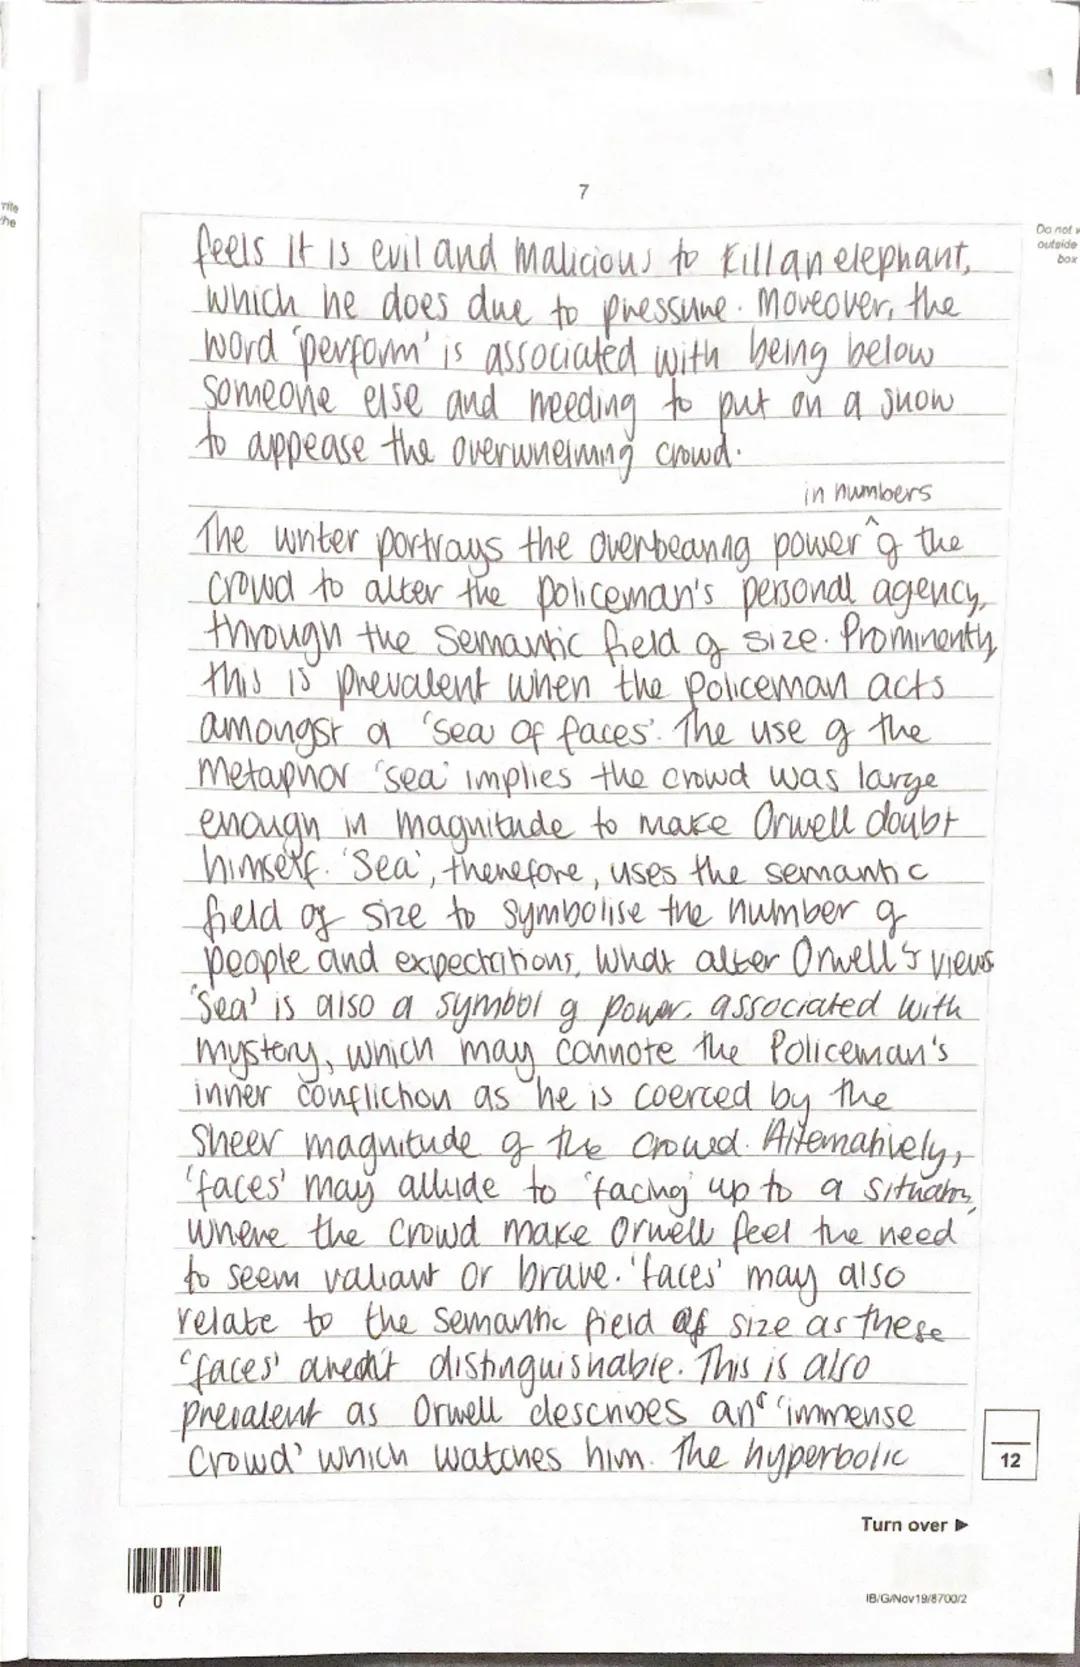 7
rite
the
Do not w
outside
box
feels it is evil and malicious to kill an elephant,
which he does due to pressure. Moreover, the
word 'perform' is associated with being below
someone else and needing to put on a show
to appease the overwhelming crowd.
in numbers
The writer portrays the overbearing power ^ of the
crowd to alter the policeman's personal agency,
through the semantic field of size. Prominently,
this is prevalent when the policeman acts
amongst a 'sea of faces'. The use of the
metaphor 'sea' implies the crowd was large
enough in magnitude to make Orwell doubt
himself. 'Sea', therefore, uses the semantic
field of size to symbolise the number of
people and expectations, what alter Orwell's views
'Sea' is also a symbol of power, associated with
mystery, which may connote the Policeman's
inner confliction as he is coerced by the
sheer magnitude of the crowd. Alternatively,
'faces' may allude to 'facing' up to a situation,
where the crowd make Orwell feel the need
to seem valiant or brave. 'faces' may also
relate to the semantic field of size as these
'faces' aren't distinguishable. This is also
prevalent as Orwell describes an 'immense
crowd' which watches him. The hyperbolic
12
Turn over ►
0 7
IB/G/Nov19/8700/2